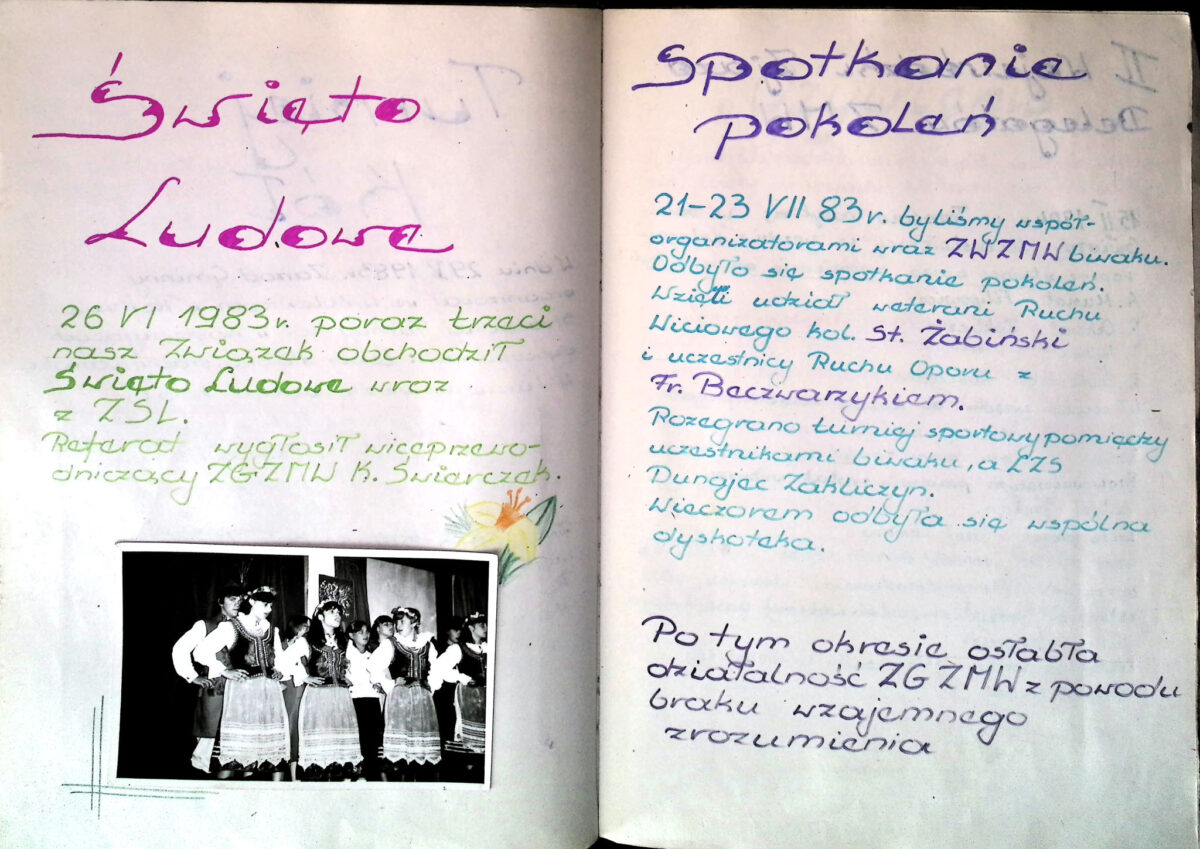 Święto
Ludowe
26 VI 1983r. poraz trzeci
nasz Związek obchodził
Święto Ludowe wraz
z ZSL.
Referat wygłosił wiceprzewo-
dniczący ZG ZMW K. Świerczek.
Spotkanie
pokoleń
21-23 VII 83r. byliśmy współ-
organizatorami wraz ZW ZMW biwaku.
Odbyło się spotkanie pokoleń.
Wzięli udział weterani Ruchu
Wiciowego kol. St. Żabiński
i uczestnicy Ruchu Oporu z
Fr. Beczwarzykiem.
Rozegrano turniej sportowy pomiędzy
uczestnikami biwaku, a LZS
Dunajec Zakliczyn.
Wieczorem odbyła się wspólna
dyskoteka.
Po tym okresie osłabła
działalność ZG ZMW z powodu
braku wzajemnego
zrozumienia